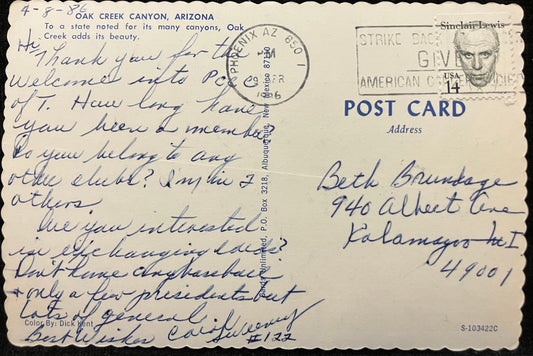 4-8-86
OAK CREEK CANYON, ARIZONA
To a state noted for its many canyons, Oak
Creek adds its beauty.
Hi
Thank you for the
welcome into P.C. C.
of T. How long have
you been a member?
Do you belong to any
other clubs? I'm in 2
others
Are you interested
in exchanging cards?
Don't have any baseball
+ only a few presidents but
lots of general
Best Wishes Carol Sweeney
#122
Color By: Dick Kent
Cards Unlimited, P.O. Box 3218, Albuquerque, New Mexico 87190
PHOENIX AZ 850 1
PM
1986
STRIKE BACK
GIVE
AMERICAN CANCER SOCIETY
Sinclair Lewis
USA
14
POST CARD
Address
Beth Brundage
940 Albert Ave
Kalamazoo MI
49001
S-103422C